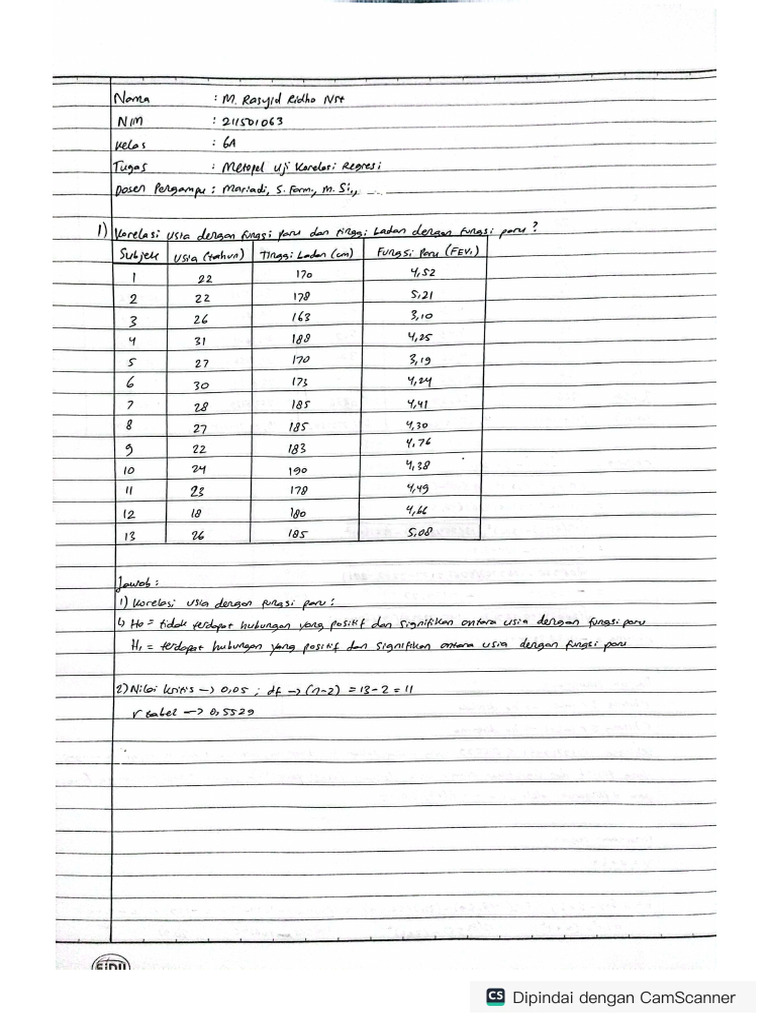 Nama : M. Rasyid Ridho Nst
NIM : 211501063
Kelas : 6A
Tugas : Metopel Uji Korelasi Regresi
Dosen Pengampu : Mariadi, S. Farm., M. Si.,
1) Korelasi usia dengan fungsi paru dan tinggi badan dengan fungsi paru ?
Subjek Usia (tahun) Tinggi badan (cm) Fungsi Paru (FEV₁)
1 22 170 4,52
2 22 178 5,21
3 26 163 3,10
4 31 188 4,25
5 27 170 3,19
6 30 173 4,24
7 28 185 4,41
8 27 185 4,30
9 22 183 4,76
10 24 190 4,38
11 23 178 4,49
12 18 180 4,66
13 26 185 5,08
Jawab :
1) Korelasi usia dengan fungsi paru :
↳ H₀ = tidak terdapat hubungan yang positif dan signifikan antara usia dengan fungsi paru
H₁ = terdapat hubungan yang positif dan signifikan antara usia dengan fungsi paru
2) Nilai kritis → 0,05 ; df → (n-2) = 13-2 = 11
r tabel → 0,5529
SIDU
CS Dipindai dengan CamScanner